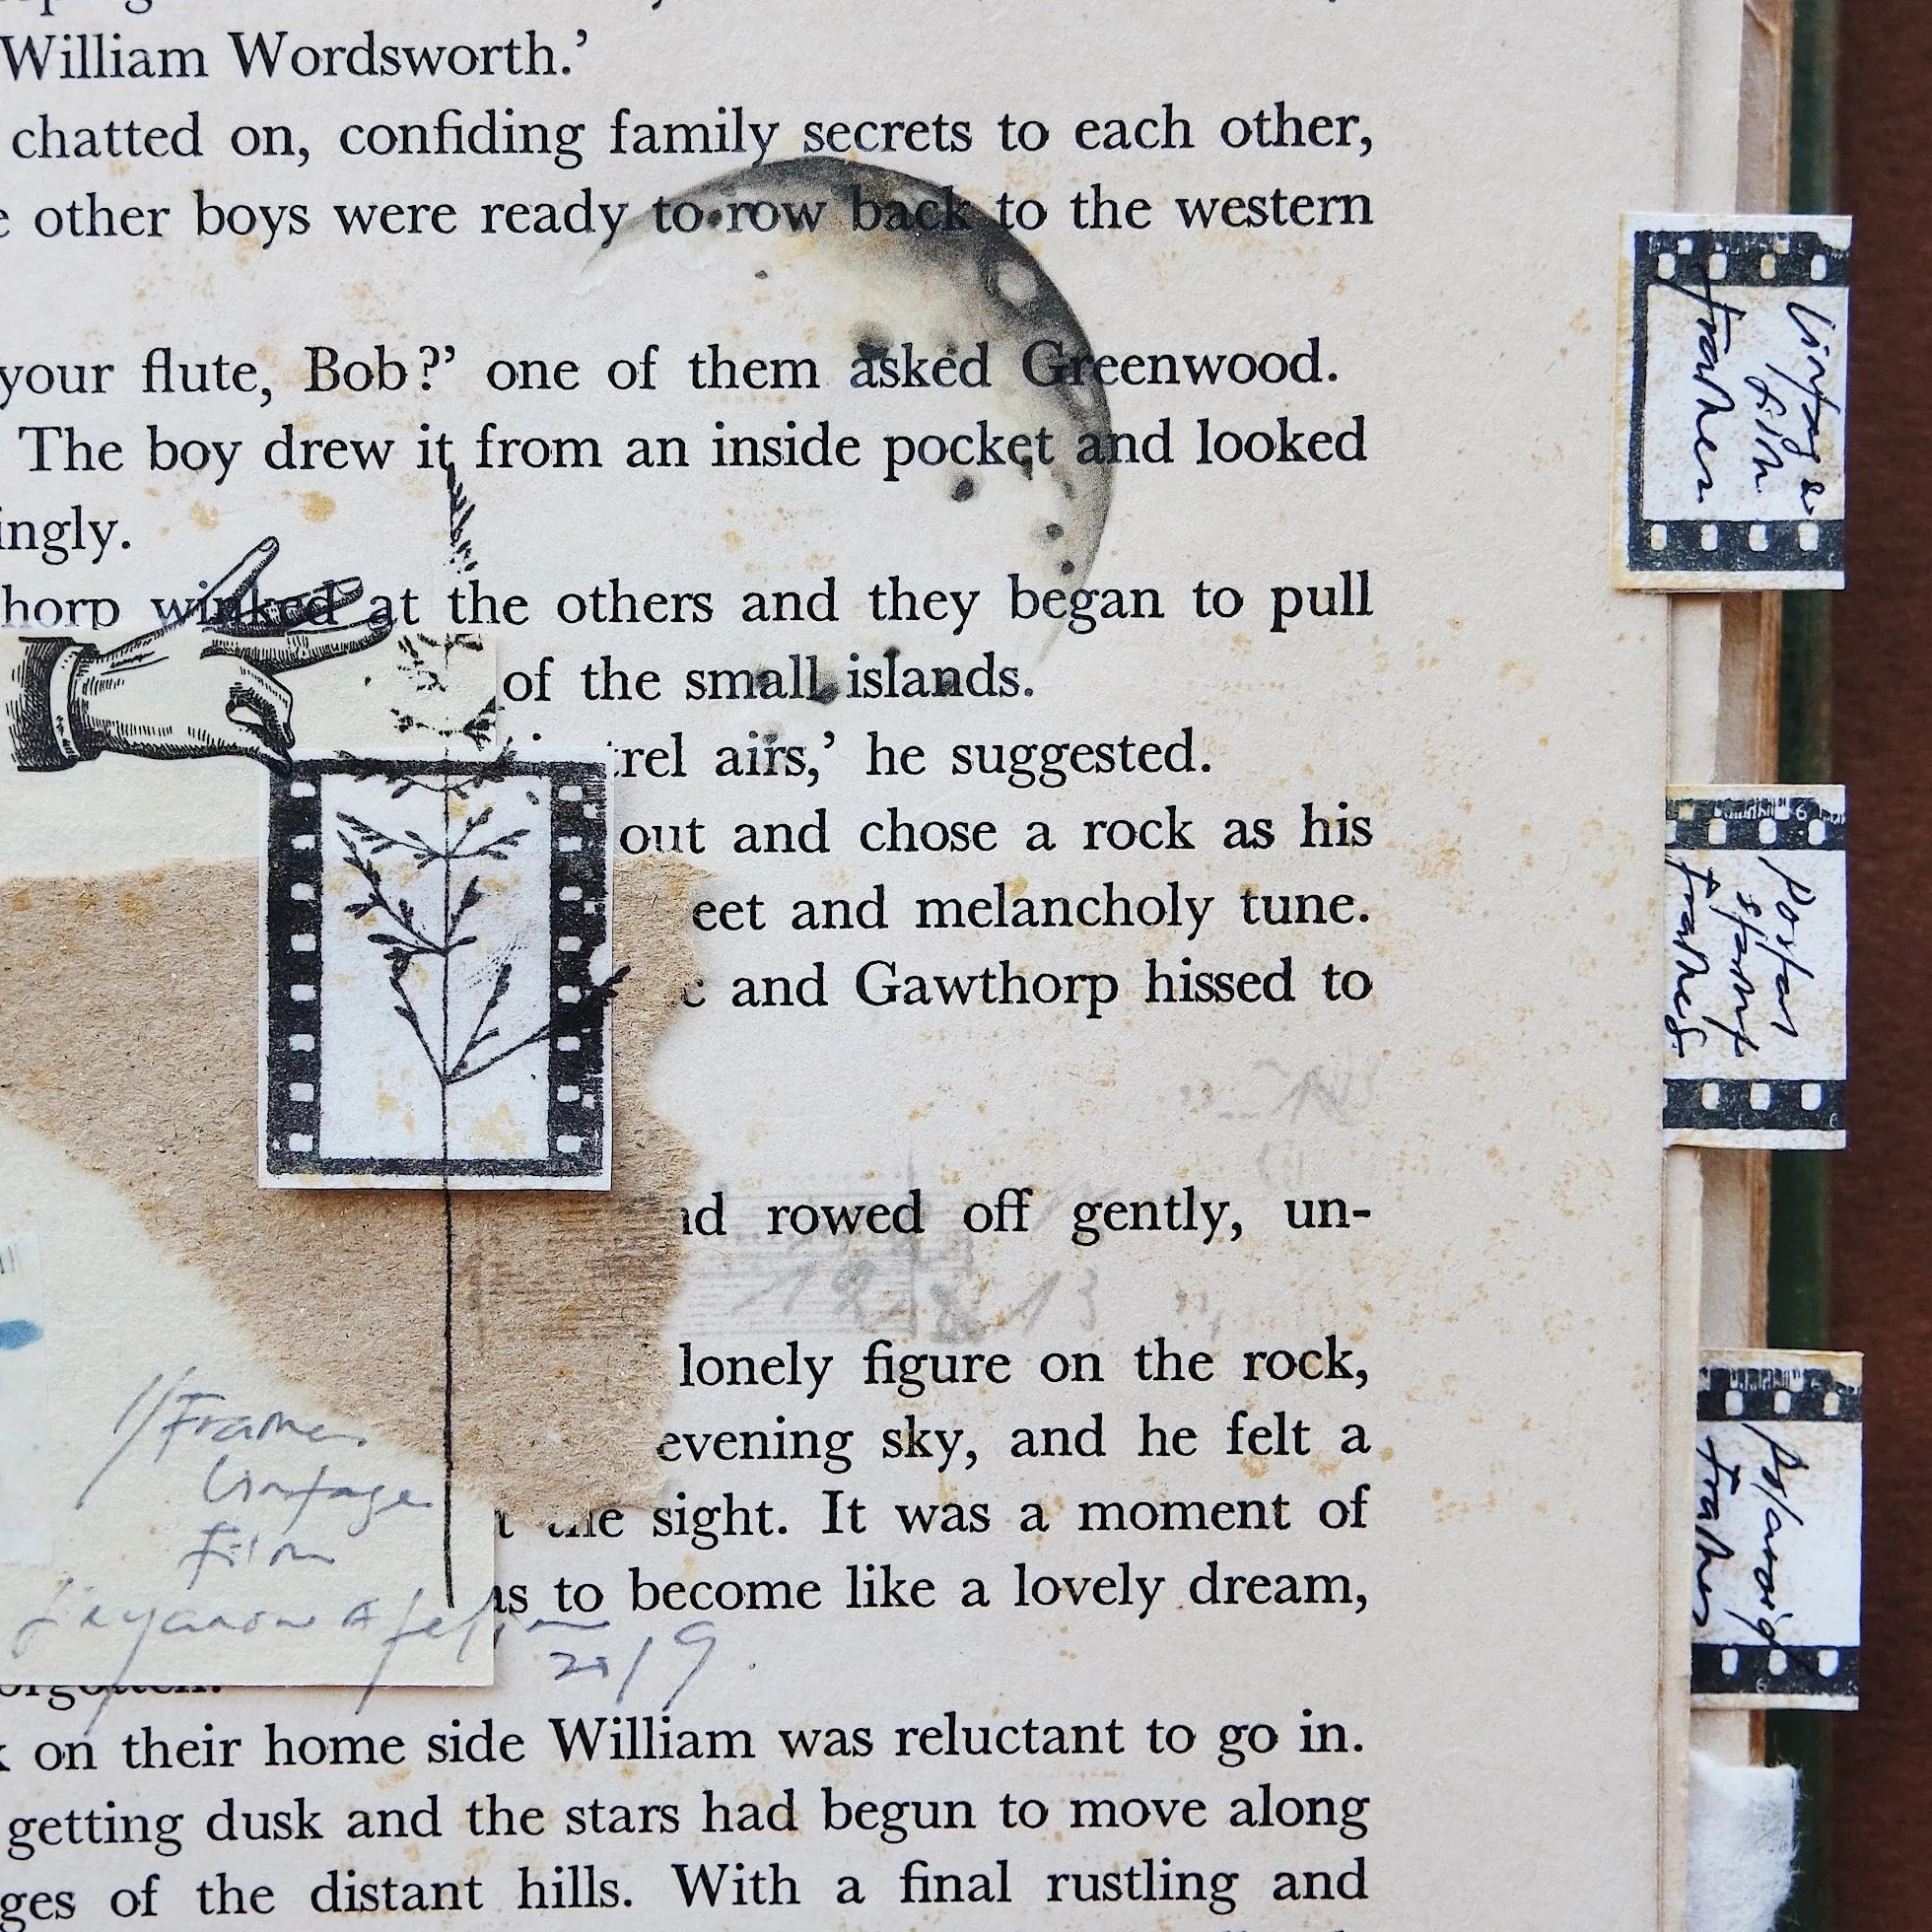 William Wordsworth.'
chatted on, confiding family secrets to each other,
other boys were ready to row back to the western
your flute, Bob?' one of them asked Greenwood.
The boy drew it from an inside pocket and looked
ingly.
horp winked at the others and they began to pull
of the small islands.
trel airs,' he suggested.
out and chose a rock as his
eet and melancholy tune.
and Gawthorp hissed to
rowed off gently, un-
lonely figure on the rock,
evening sky, and he felt a
the sight. It was a moment of
as to become like a lovely dream,
on their home side William was reluctant to go in.
getting dusk and the stars had begun to move along
ges of the distant hills. With a final rustling and
//Frames
Vintage
Film
2019
Vintage
film
frames
Postal
stamp
frames
Polaroid
frames